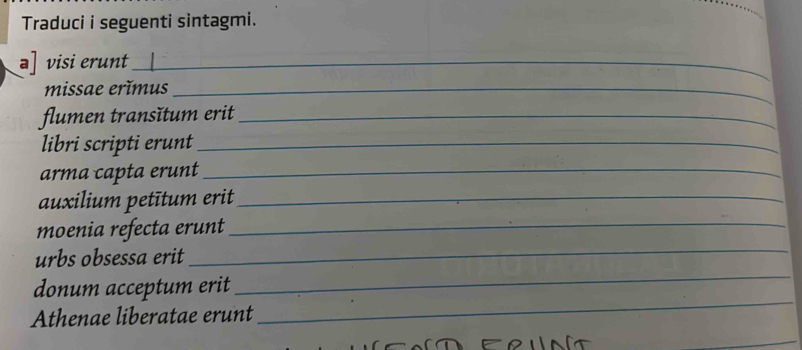 Traduci i seguenti sintagmi.
a] visi erunt
missae erĭmus
flumen transĭtum erit
libri scripti erunt
arma capta erunt
auxilium petītum erit
moenia refecta erunt
urbs obsessa erit
donum acceptum erit
Athenae liberatae erunt
ERUNT